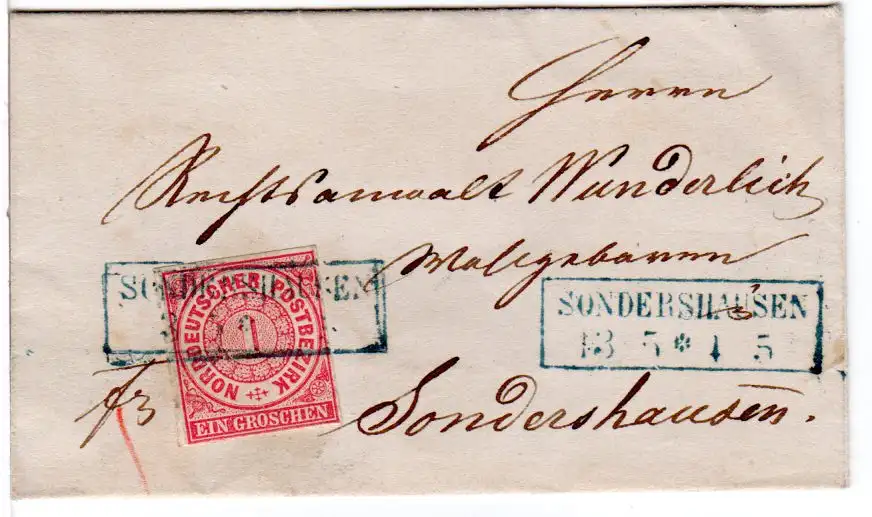 Herrn
Rechtsanwalt Wunderlich
Wolgeboren
SONDERSHAUSEN
NORDDEUTSCHER POSTBEZIRK
1
EIN GROSCHEN
SONDERSHAUSEN
13 5 * 4 5
frz
Sondershausen.